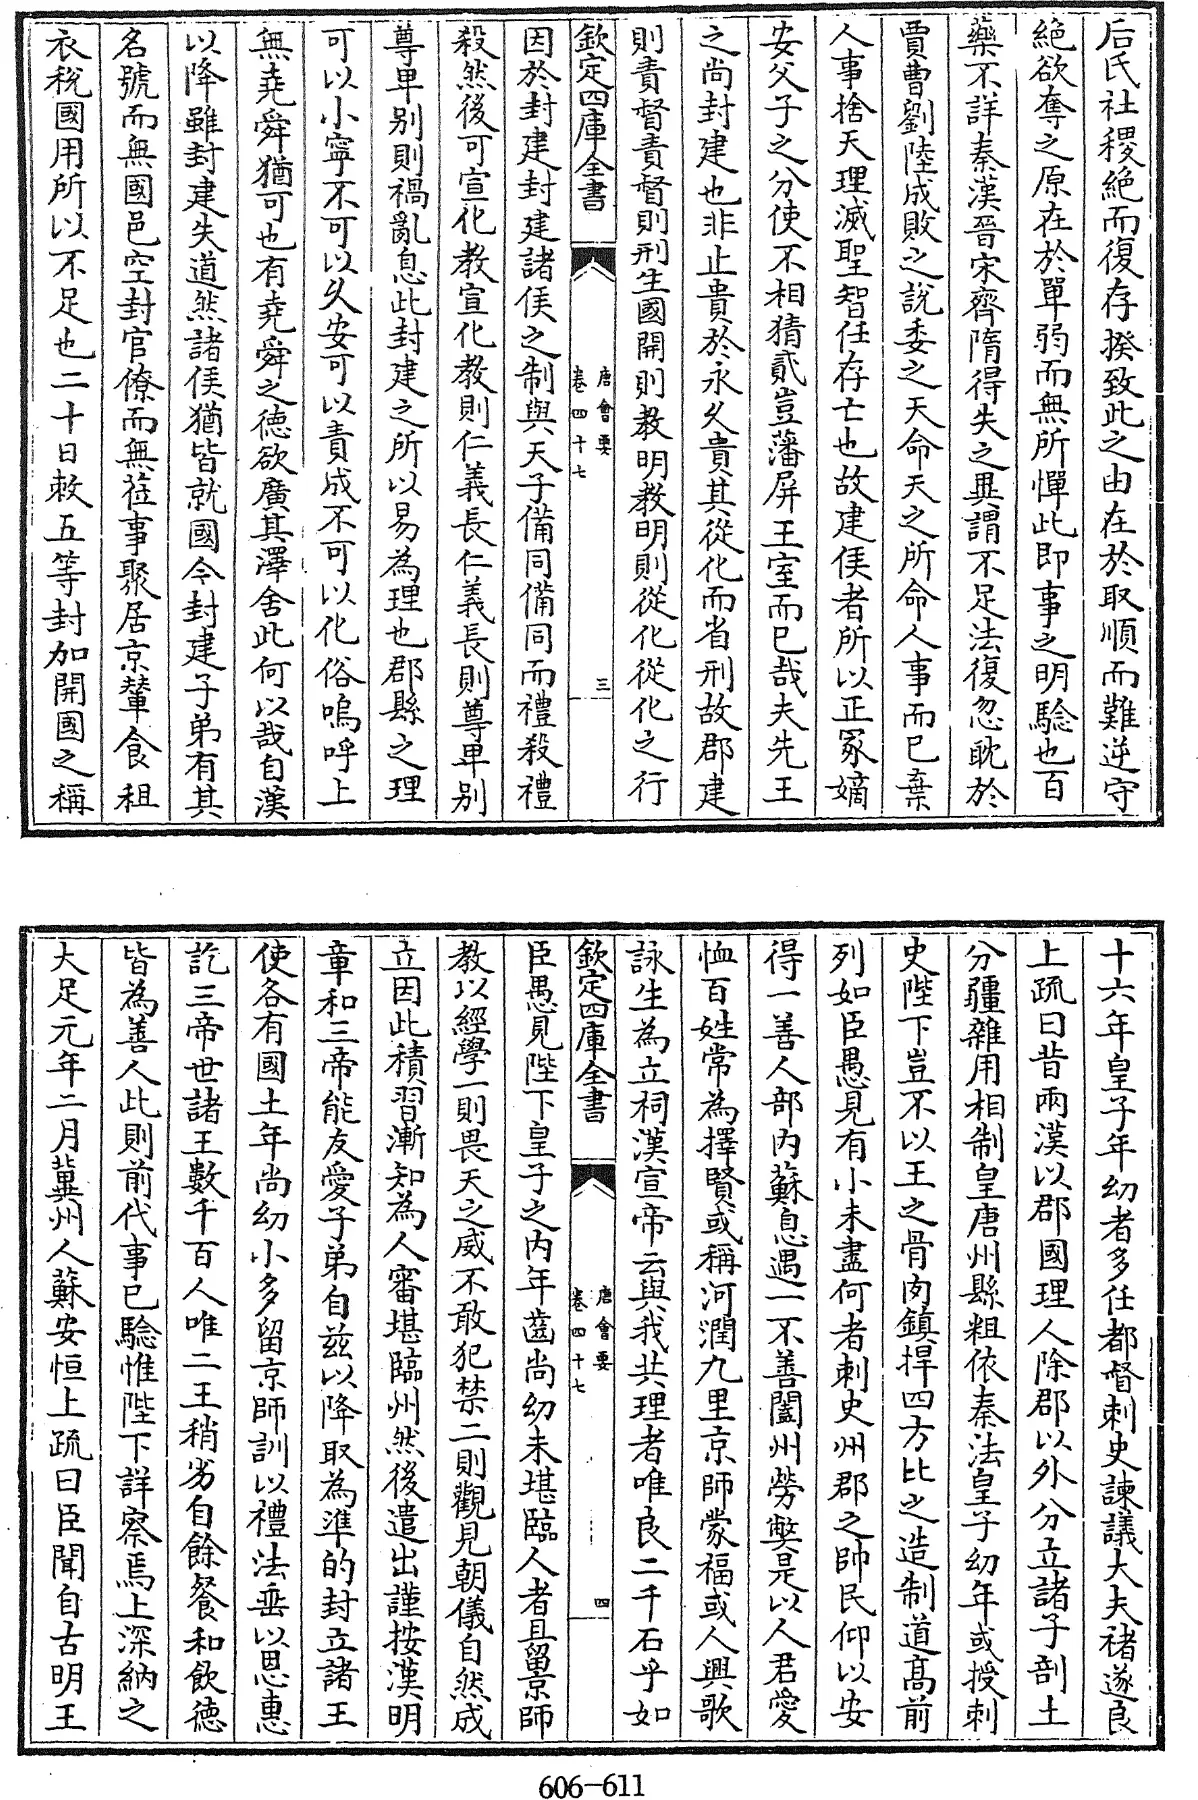 后氏社稷絶而復存揆致此之由在於取順而難逆守
絶欲奪之原在於單弱而無所憚此即事之明驗也百
藥不詳秦漢晉宋齊隋得失之異謂不足法復忽耽於
賈曹劉陸成敗之說委之天命天之所命人事而已棄
人事捨天理滅聖智任存亡也故建侯者所以正冢嫡
安父子之分使不相猜貳豈藩屏王室而已哉夫先王
之尚封建也非止貴於永久貴其從化而省刑故郡建
則責督責督則刑生國開則教明教明則從化從化之行
欽定四庫全書
唐會要
卷四十七
三
因於封建封建諸侯之制與天子備同備同而禮殺禮
殺然後可宣化教宣化教則仁義長仁義長則尊卑别
尊卑别則禍亂息此封建之所以易為理也郡縣之理
可以小寧不可以久安可以責成不可以化俗嗚呼上
無堯舜猶可也有堯舜之德欲廣其澤舍此何以哉自漢
以降雖封建失道然諸侯猶皆就國今封建子弟有其
名號而無國邑空封官僚而無莅事聚居京輦食租
衣稅國用所以不足也二十日敕五等封加開國之稱
十六年皇子年幼者多任都督刺史諫議大夫禇遂良
上疏曰昔兩漢以郡國理人除郡以外分立諸子剖土
分疆雜用相制皇唐州縣粗依秦法皇子幼年或授刺
史陛下豈不以王之骨肉鎮捍四方比之造制道高前
列如臣愚見有小未盡何者刺史州郡之帥民仰以安
得一善人部内蘇息遇一不善闔州勞弊是以人君愛
恤百姓常為擇賢或稱河潤九里京師蒙福或人興歌
詠生為立祠漢宣帝云與我共理者唯良二千石乎如
欽定四庫全書
唐會要
卷四十七
四
臣愚見陛下皇子之内年齒尚幼未堪臨人者且留京師
教以經學一則畏天之威不敢犯禁二則觀見朝儀自然成
立因此積習漸知為人審堪臨州然後遣出謹按漢明
章和三帝能友愛子弟自茲以降取為準的封立諸王
使各有國土年尚幼小多留京師訓以禮法垂以恩惠
訖三帝世諸王數千百人唯二王稍劣自餘餐和飲德
皆為善人此則前代事已驗惟陛下詳察焉上深納之
大足元年二月冀州人蘇安恒上疏曰臣聞自古明王
606-611